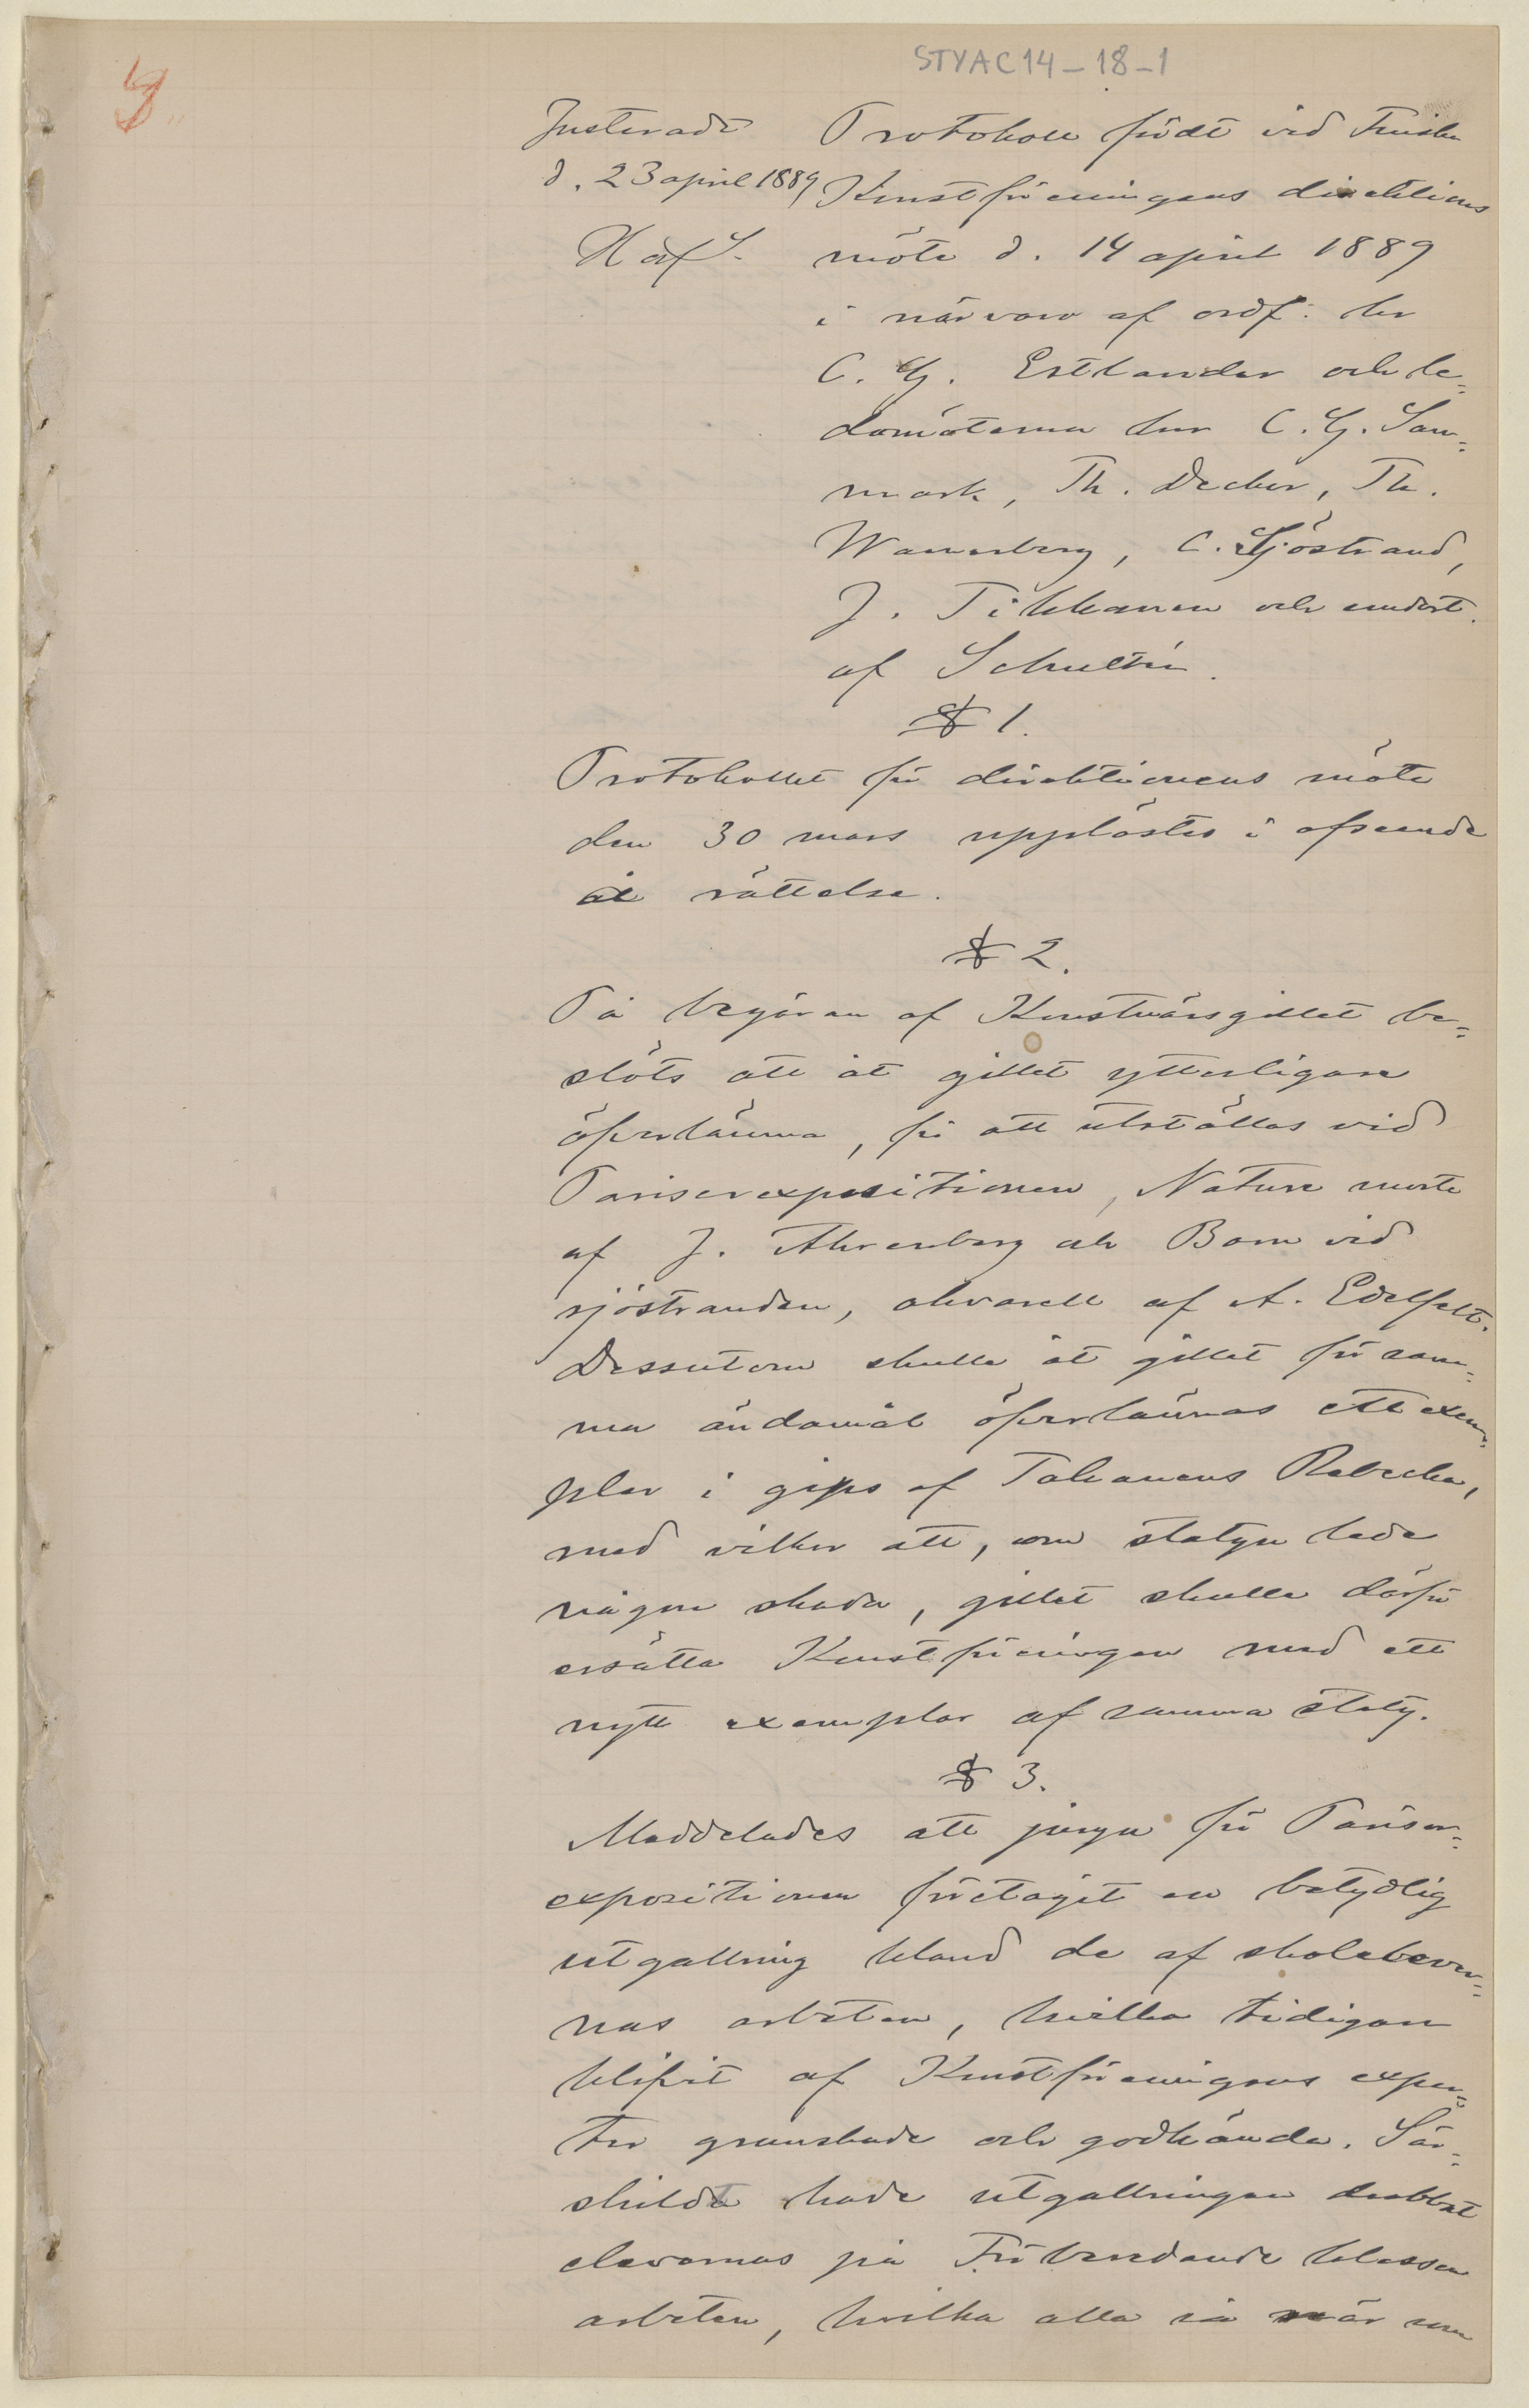 STYAC14-18-1
9.
Justeradt
d. 23 april 1889
H af S.
Protokoll fördt vid Finska
Konstföreningens direktions
möte d. 14 april 1889
i närvaro af ordf: hr
C. G. Estlander och le=
damöterna hrr C. G. San=
mark, Th. Decker, Th.
Wænerberg, C. Sjöstrand,
J. Tikkanen och undert.
af Schultén.
§ 1.
Protokollet för direktionens möte
den 30 mars upplästes i afseende
å rättelse.
§ 2.
På begäran af Konstnärsgillet be=
slöts att åt gillet ytterligare
öfverlämna, för att utställas vid
Pariserexpositionen, Nature morte
af J. Ahrenberg och Barn vid
sjöstranden, akvarell af A. Edelfelt.
Dessutom skulle åt gillet för sam=
ma ändamål öfverlämnas ett exem=
plar i gips af Takanens Rebecka,
med vilkor att, om statyn lede
någon skada, gillet skulle därför
ersätta Konstföreningen med ett
nytt exemplar af samma staty.
§ 3.
Meddelades att juryn för Pariser=
expositionen företagit en betydlig
utgallring bland de af skolelever=
nas arbeten, hvilka tidigare
blifvit af Konstföreningens exper=
ter granskade och godkända. Sär=
skildt hade utgallringen drabbat
elevernas på Förberedande klassen
arbeten, hvilka alla så när som